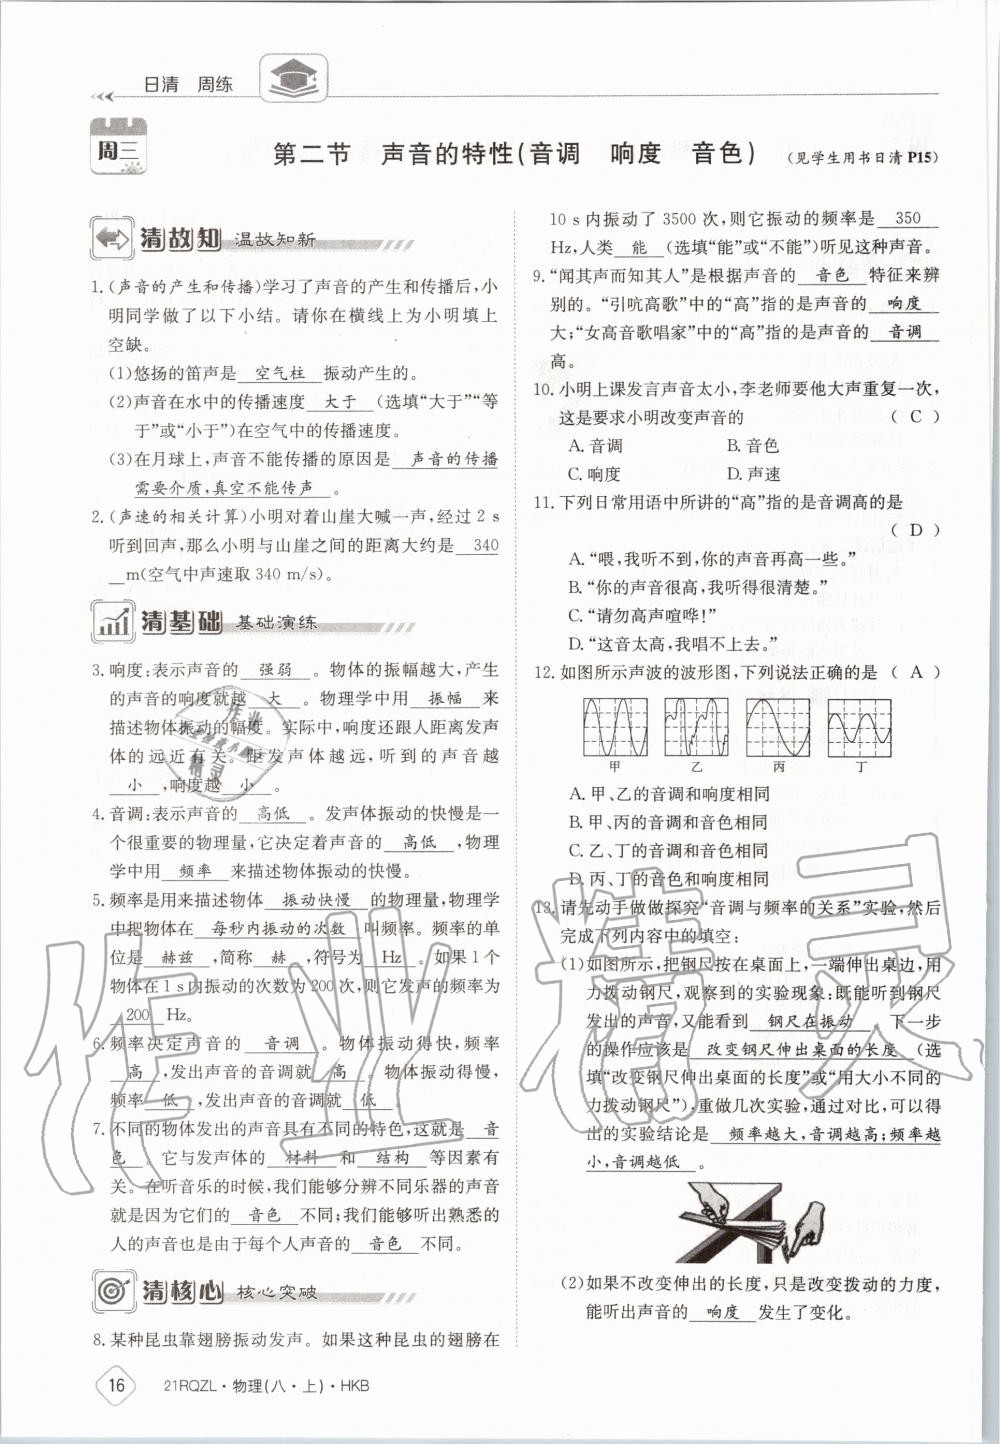 日清 周练
周三
第二节 声音的特性(音调 响度 音色)
(见学生用书日清 P15)
清故知 温故知新
1.(声音的产生和传播)学习了声音的产生和传播后,小
明同学做了以下小结。请你在横线上为小明填上
空缺。
(1)悠扬的笛声是 空气柱 振动产生的。
(2)声音在水中的传播速度 大于 (选填“大于”“等
于”或“小于”)在空气中的传播速度。
(3)在月球上,声音不能传播的原因是 声音的传播
需要介质,真空不能传声 。
2.(声速的相关计算)小明对着山崖大喊一声,经过 2 s
听到回声,那么小明与山崖之间的距离大约是 340
m(空气中声速取 340 m/s)。
清基础 基础演练
3.响度:表示声音的 强弱 。物体的振幅越大,产生
的声音的响度就越 大 。物理学中用 振幅 来
描述物体振动的幅度。实际中,响度还跟人距离发声
体的远近有关。距发声体越远,听到的声音越
小 ,响度越 小 。
4.音调:表示声音的 高低 。发声体振动的快慢是一
个很重要的物理量,它决定着声音的 高低 ,物理
学中用 频率 来描述物体振动的快慢。
5.频率是用来描述物体 振动快慢 的物理量,物理学
中把物体在 每秒内振动的次数 叫频率。频率的单
位是 赫兹 ,简称 赫 ,符号为 Hz 。如果 1 个
物体在 1 s 内振动的次数为 200 次,则它发声的频率为
200 Hz。
6.频率决定声音的 音调 。物体振动得快,频率
高 ,发出声音的音调就 高 。物体振动得慢,
频率 低 ,发出声音的音调就 低 。
7.不同的物体发出的声音具有不同的特色,这就是 音
色 。它与发声体的 材料 和 结构 等因素有
关。在听音乐的时候,我们能够分辨不同乐器的声音
就是因为它们的 音色 不同;我们能够听出熟悉的
人的声音也是由于每个人声音的 音色 不同。
清核心 核心突破
8.某种昆虫靠翅膀振动发声。如果这种昆虫的翅膀在
10 s 内振动了 3500 次,则它振动的频率是 350
Hz,人类 能 (选填“能”或“不能”)听见这种声音。
9.“闻其声而知其人”是根据声音的 音色 特征来辨
别的。“引吭高歌”中的“高”指的是声音的 响度
大;“女高音歌唱家”中的“高”指的是声音的 音调
高。
10.小明上课发言声音太小,李老师要他大声重复一次,
这是要求小明改变声音的 ( C )
A.音调 B.音色
C.响度 D.声速
11.下列日常用语中所讲的“高”指的是音调高的是
( D )
A.“喂,我听不到,你的声音再高一些。”
B.“你的声音很高,我听得很清楚。”
C.“请勿高声喧哗!”
D.“这音太高,我唱不上去。”
12.如图所示声波的波形图,下列说法正确的是 ( A )
甲 乙 丙 丁
A.甲、乙的音调和响度相同
B.甲、丙的音调和音色相同
C.乙、丁的音调和音色相同
D.丙、丁的音色和响度相同
13.请先动手做做探究“音调与频率的关系”实验,然后
完成下列内容中的填空:
(1)如图所示,把钢尺按在桌面上,一端伸出桌边,用
力拨动钢尺,观察到的实验现象:既能听到钢尺
发出的声音,又能看到 钢尺在振动 。下一步
的操作应该是 改变钢尺伸出桌面的长度 (选
填“改变钢尺伸出桌面的长度”或“用大小不同的
力拨动钢尺”),重做几次实验,通过对比,可以得
出的实验结论是 频率越大,音调越高;频率越
小,音调越低 。
(2)如果不改变伸出的长度,只是改变拨动的力度,
能听出声音的 响度 发生了变化。
16 21RQZL·物理(八·上)·HKB
作业精灵